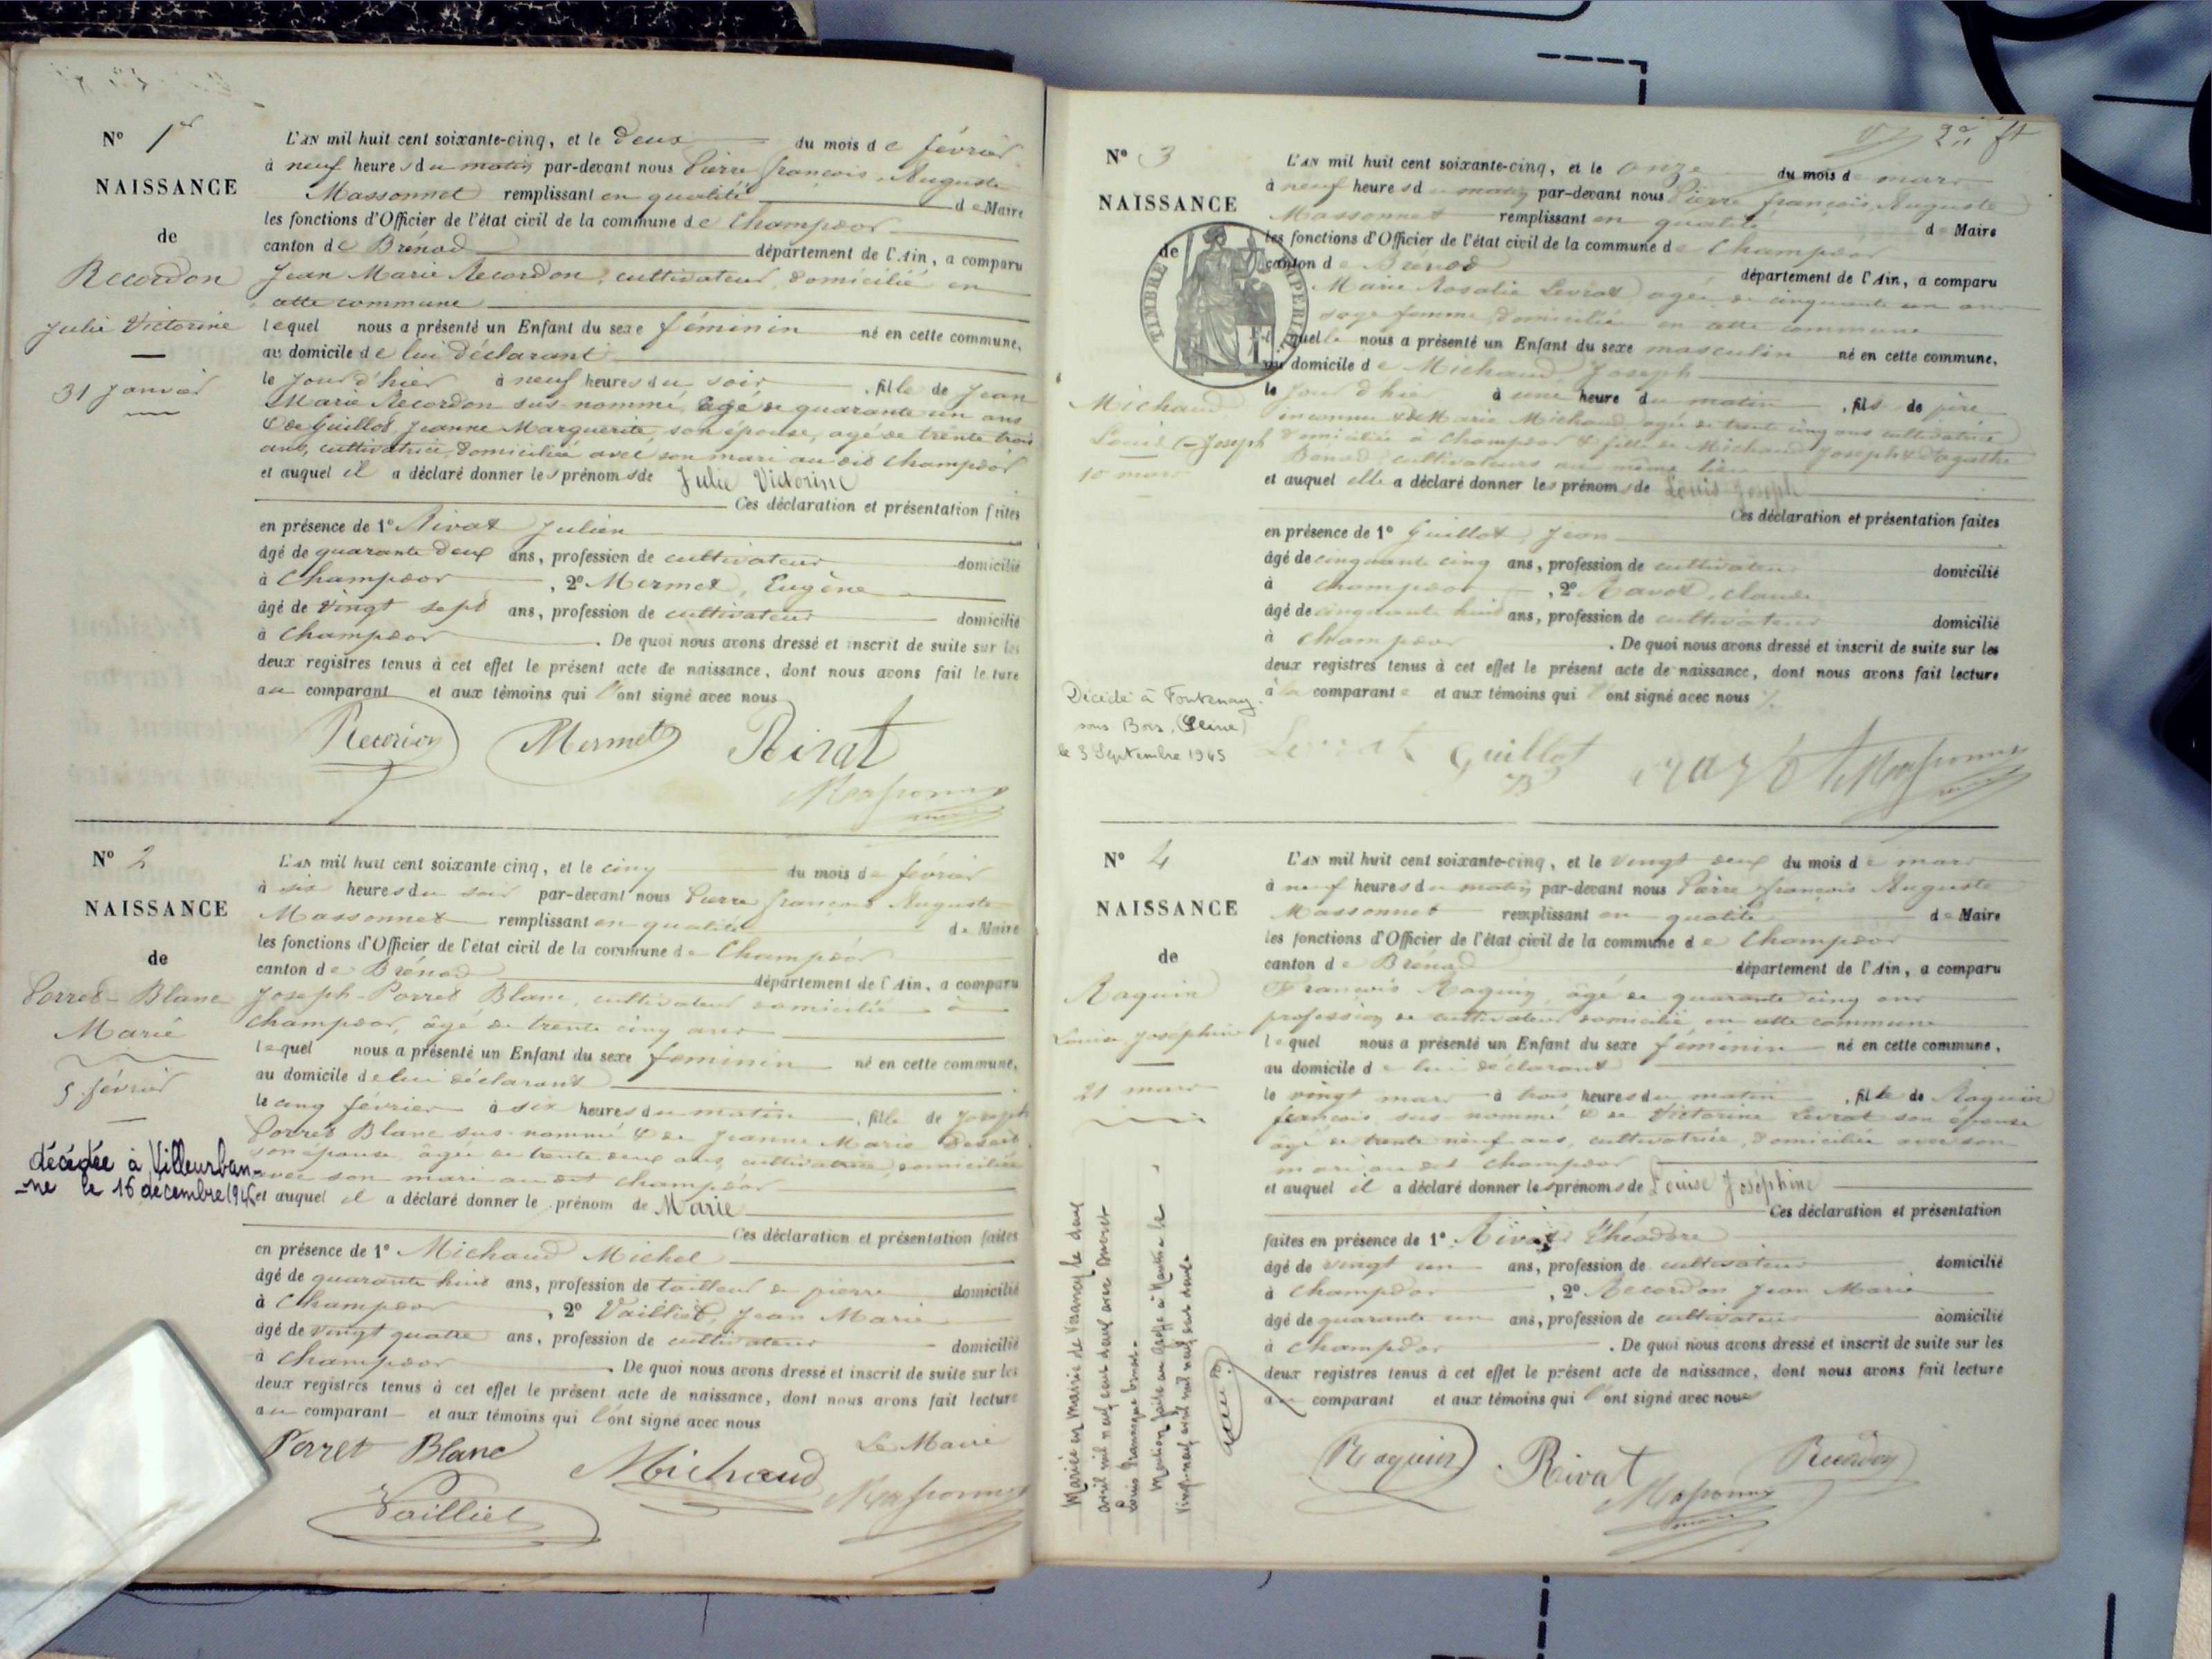 N° 1er
NAISSANCE
de
Recordon
Julie Victorine
31 janvier
L'AN mil huit cent soixante-cinq, et le deux du mois de février
à neuf heures du matin par-devant nous Pierre françois Auguste
Massonnet remplissant en qualité de Maire
les fonctions d'Officier de l'état civil de la commune de Champdor
canton de Brénod département de l'Ain, a comparu
Jean Marie Recordon, cultivateur, domicilié en
cette commune
lequel nous a présenté un Enfant du sexe féminin né en cette commune,
au domicile de lui déclarant
le jour d'hier à neuf heures du soir, fille de Jean
Marie Recordon sus-nommé, âgé de quarante un ans
& de Guillot Jeanne Marguerite, son épouse, agé de trente trois
ans, cultivatrice, domiciliée avec son mari au dit Champdor
et auquel il a déclaré donner les prénoms de Julie Victorine
Ces déclaration et présentation faites
en présence de 1° Rivat Julien
âgé de quarante deux ans, profession de cultivateur domicilié
à Champdor, 2° Mermet, Eugène
âgé de vingt sept ans, profession de cultivateur domicilié
à Champdor. De quoi nous avons dressé et inscrit de suite sur les
deux registres tenus à cet effet le présent acte de naissance, dont nous avons fait lecture
au comparant et aux témoins qui l'ont signé avec nous
Recordon Mermet Rivat
Massonnet
N° 2
NAISSANCE
de
Porret-Blanc
Marie
5 février
décédée à Villeurban-
-ne le 16 décembre 1946
L'AN mil huit cent soixante cinq, et le cinq du mois de février
à six heures du soir par-devant nous Pierre françois Auguste
Massonnet remplissant en qualité de Maire
les fonctions d'Officier de l'état civil de la commune de Champdor
canton de Brénod département de l'Ain, a comparu
Joseph-Porret Blanc, cultivateur domicilié à
Champdor, âgé de trente cinq ans
lequel nous a présenté un Enfant du sexe féminin né en cette commune,
au domicile de lui déclarant
le cinq février à six heures du matin, fille de Joseph
Porret Blanc sus-nommé & de Jeanne Marie
son épouse, âgée de trente deux ans, cultivatrice, domiciliée
avec son mari au dit champdor
et auquel il a déclaré donner le prénom de Marie
Ces déclaration et présentation faites
en présence de 1° Michaud Michel
âgé de quarante huit ans, profession de tailleur de pierre domicilié
à Champdor, 2° Vailliet, Jean Marie
âgé de vingt quatre ans, profession de cultivateur domicilié
à Champdor. De quoi nous avons dressé et inscrit de suite sur les
deux registres tenus à cet effet le présent acte de naissance, dont nous avons fait lecture
au comparant et aux témoins qui l'ont signé avec nous
Porret Blanc Michaud Le Maire
Vailliet Massonnet
2
N° 3
NAISSANCE
de
TIMBRE IMPERIAL
Michaud
Louis Joseph
10 mars
Décédé à Fontenay-
sous Bois (Seine)
le 3 Septembre 1945
L'AN mil huit cent soixante-cinq, et le onze du mois de mars
à neuf heures du matin par-devant nous Pierre françois Auguste
Massonnet remplissant en qualité de Maire
les fonctions d'Officier de l'état civil de la commune de Champdor
canton de Brénod département de l'Ain, a comparu
Marie Rosalie Levrat, agée de cinquante un ans
sage femme, domiciliée en cette commune
quelle nous a présenté un Enfant du sexe masculin né en cette commune,
au domicile de Michaud, Joseph
le jour d'hier à une heure du matin, fils de père
inconnu & de Marie Michaud, agée de trente cinq ans cultivatrice
domiciliée à Champdor & fille de Michaud Joseph & d'agathe
Benod, cultivateurs au même lieu
et auquel elle a déclaré donner les prénoms de Louis Joseph
Ces déclaration et présentation faites
en présence de 1° Guillot, Jean
âgé de cinquante cinq ans, profession de cultivateur domicilié
à Champdor, 2° Ravot, claude
âgé de cinquante huit ans, profession de cultivateur domicilié
à Champdor. De quoi nous avons dressé et inscrit de suite sur les
deux registres tenus à cet effet le présent acte de naissance, dont nous avons fait lecture
à la comparante et aux témoins qui l'ont signé avec nous
Levrat Guillot Ravot Massonnet
N° 4
NAISSANCE
de
Raquin
Louise Joséphine
21 mars
Mariée en Mairie de le deux
avril mil neuf cent deux avec
Mention faite au Greffe à Nantua le
vingt-neuf avril mil neuf cent deux
L'AN mil huit cent soixante-cinq, et le vingt deux du mois de mars
à neuf heures du matin par-devant nous Pierre françois Auguste
Massonnet remplissant en qualité de Maire
les fonctions d'Officier de l'état civil de la commune de Champdor
canton de Brénod département de l'Ain, a comparu
François Raquin, âgé de quarante cinq ans
profession de cultivateur domicilié en cette commune
lequel nous a présenté un Enfant du sexe féminin né en cette commune,
au domicile de lui déclarant
le vingt mars à trois heures du matin, fille de Raquin
françois sus-nommé & de Victorine Levrat son épouse
âgé de trente neuf ans, cultivatrice, domiciliée avec son
mari au dit champdor
et auquel il a déclaré donner les prénoms de Louise Joséphine
Ces déclaration et présentation
faites en présence de 1° Rivat Théodore
âgé de vingt un ans, profession de cultivateur domicilié
à Champdor, 2° Recordon Jean Marie
âgé de quarante un ans, profession de cultivateur domicilié
à Champdor. De quoi nous avons dressé et inscrit de suite sur les
deux registres tenus à cet effet le présent acte de naissance, dont nous avons fait lecture
au comparant et aux témoins qui l'ont signé avec nous
Raquin Rivat Recordon
Massonnet
maire